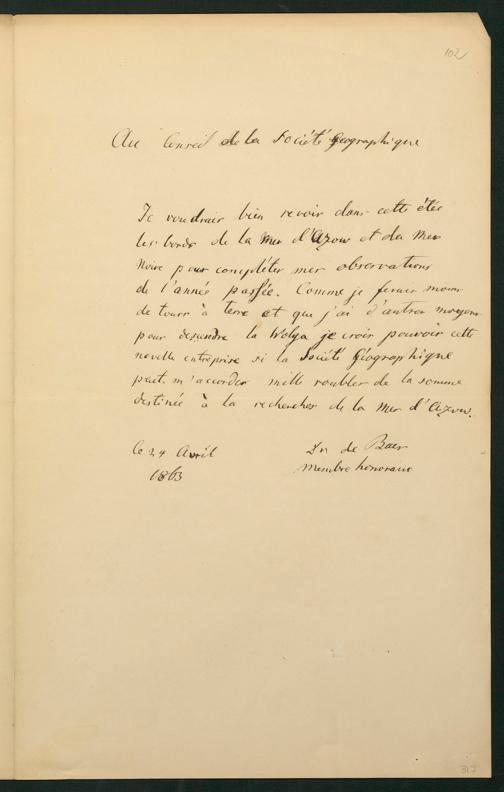 102
Au Conseil de la Société Géographique
Je voudrais bien revoir dans cette étée
les bords de la Mer d'Azow et du Mer
Noire pour compléter mes observations
de l'année passée. Comme je ferais moins
de tours à terre et que j'ai d'autres moyens
pour descendre la Wolga je crois pouvoir cette
novelle entreprise si la Société Géographique
peut m'accorder mille roubles de la somme
destinée à la recherches de la Mer d'Azow.
le 24 Avril
1863
de Baer
Membre honoraire